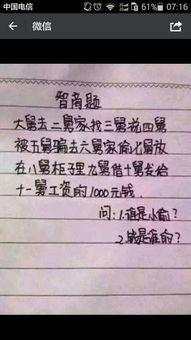 中国电信 61% 07:16
微信
智商题
大舅去二舅家找三舅说四舅
被五舅骗去六舅家偷七舅放
在八舅柜子里九舅借十舅发给
十一舅工资的1000元钱
问:1.谁是小偷?
2.钱是谁的?